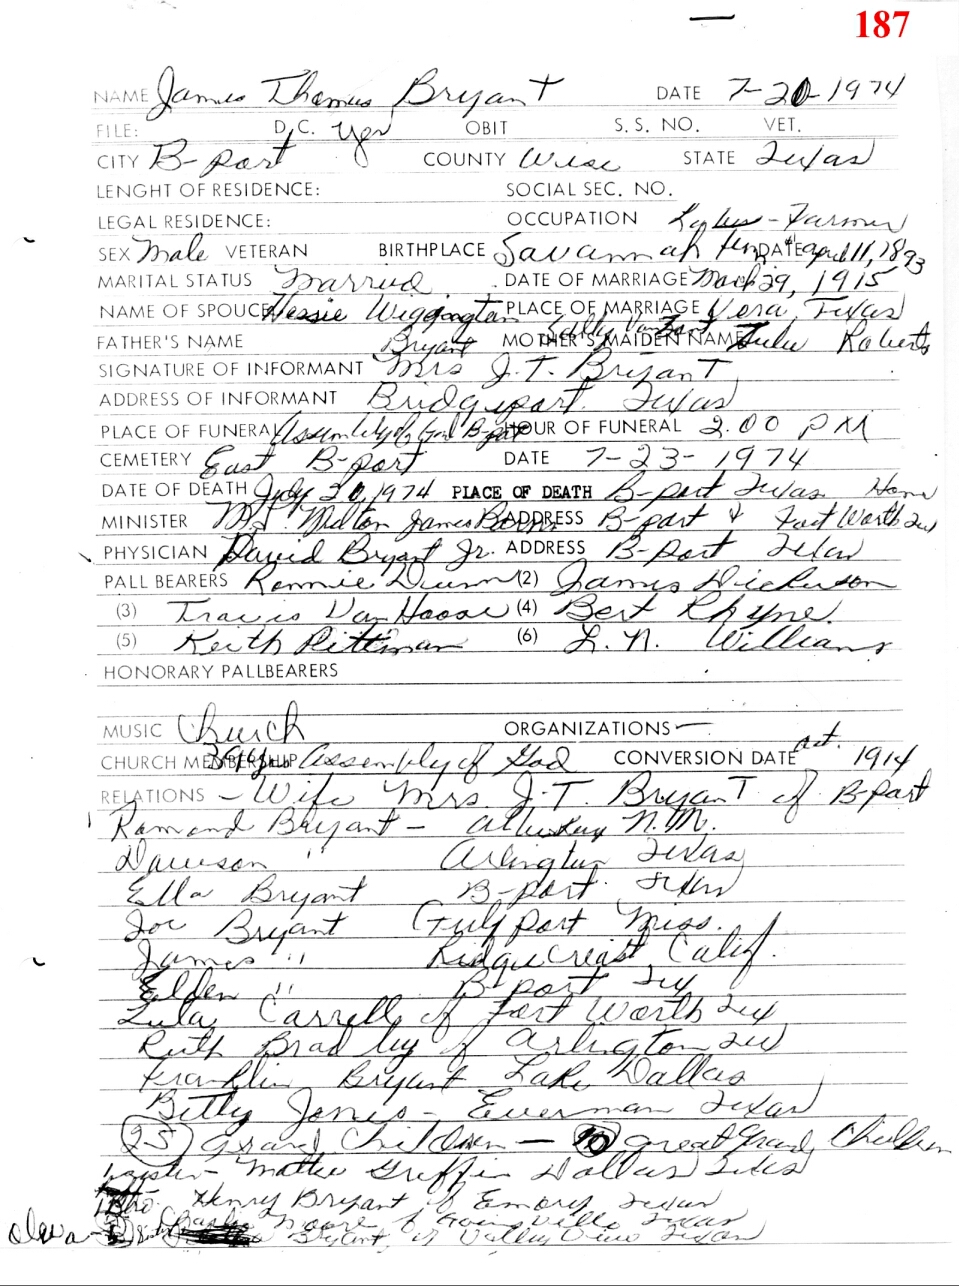 187
NAME James Thomas Bryant DATE 7-20-1974
FILE: D.C. yes OBIT S. S. NO. VET.
CITY B-port COUNTY Wise STATE Texas
LENGHT OF RESIDENCE: SOCIAL SEC. NO.
LEGAL RESIDENCE: OCCUPATION Farmer
SEX Male VETERAN BIRTHPLACE Savannah Tenn DATE April 11, 1893
MARITAL STATUS Married DATE OF MARRIAGE March 29, 1915
NAME OF SPOUCE Hessie Wiggington PLACE OF MARRIAGE Vera, Texas
FATHER'S NAME Bryant MOTHER'S MAIDEN NAME Lulu Roberts
SIGNATURE OF INFORMANT Mrs J.T. Bryant
ADDRESS OF INFORMANT Bridgeport. Texas
PLACE OF FUNERAL Assembly of God B-port HOUR OF FUNERAL 2:00 PM
CEMETERY East B-port DATE 7-23-1974
DATE OF DEATH July 20, 1974 PLACE OF DEATH B-port Texas Home
MINISTER Milton James ADDRESS B-port & Fort Worth Tex
PHYSICIAN David Bryant Jr. ADDRESS B-port Texas
PALL BEARERS Ronnie Dunn (2) James Dickerson
(3) Travis Van Hoose (4) Bert Rhyne.
(5) Keith Pittman (6) L. N. Williams
HONORARY PALLBEARERS
MUSIC Church ORGANIZATIONS —
CHURCH MEMBERSHIP Assembly of God CONVERSION DATE oct. 1914
RELATIONS - Wife Mrs. J.T. Bryant of B-port
Ramond Bryant - N.M.
Dawson " Arlington Texas
Ella Bryant B-port. Texas
Joe Bryant Gulfport Miss.
James " Ridge Creast Calif.
Elden " B-port Tex
Lula Carrell of Fort Worth Tex
Ruth Bradley of Arlington Tex
Franklin Bryant Lake Dallas
Betty Jones - Everman Texas
25 grand Children - 10 great Grand Children
sister - Mattie Griffin Dallas Texas
Bro. Henry Bryant of Emory Texas
Moore of Texas
Bryant, of Valley View Texan